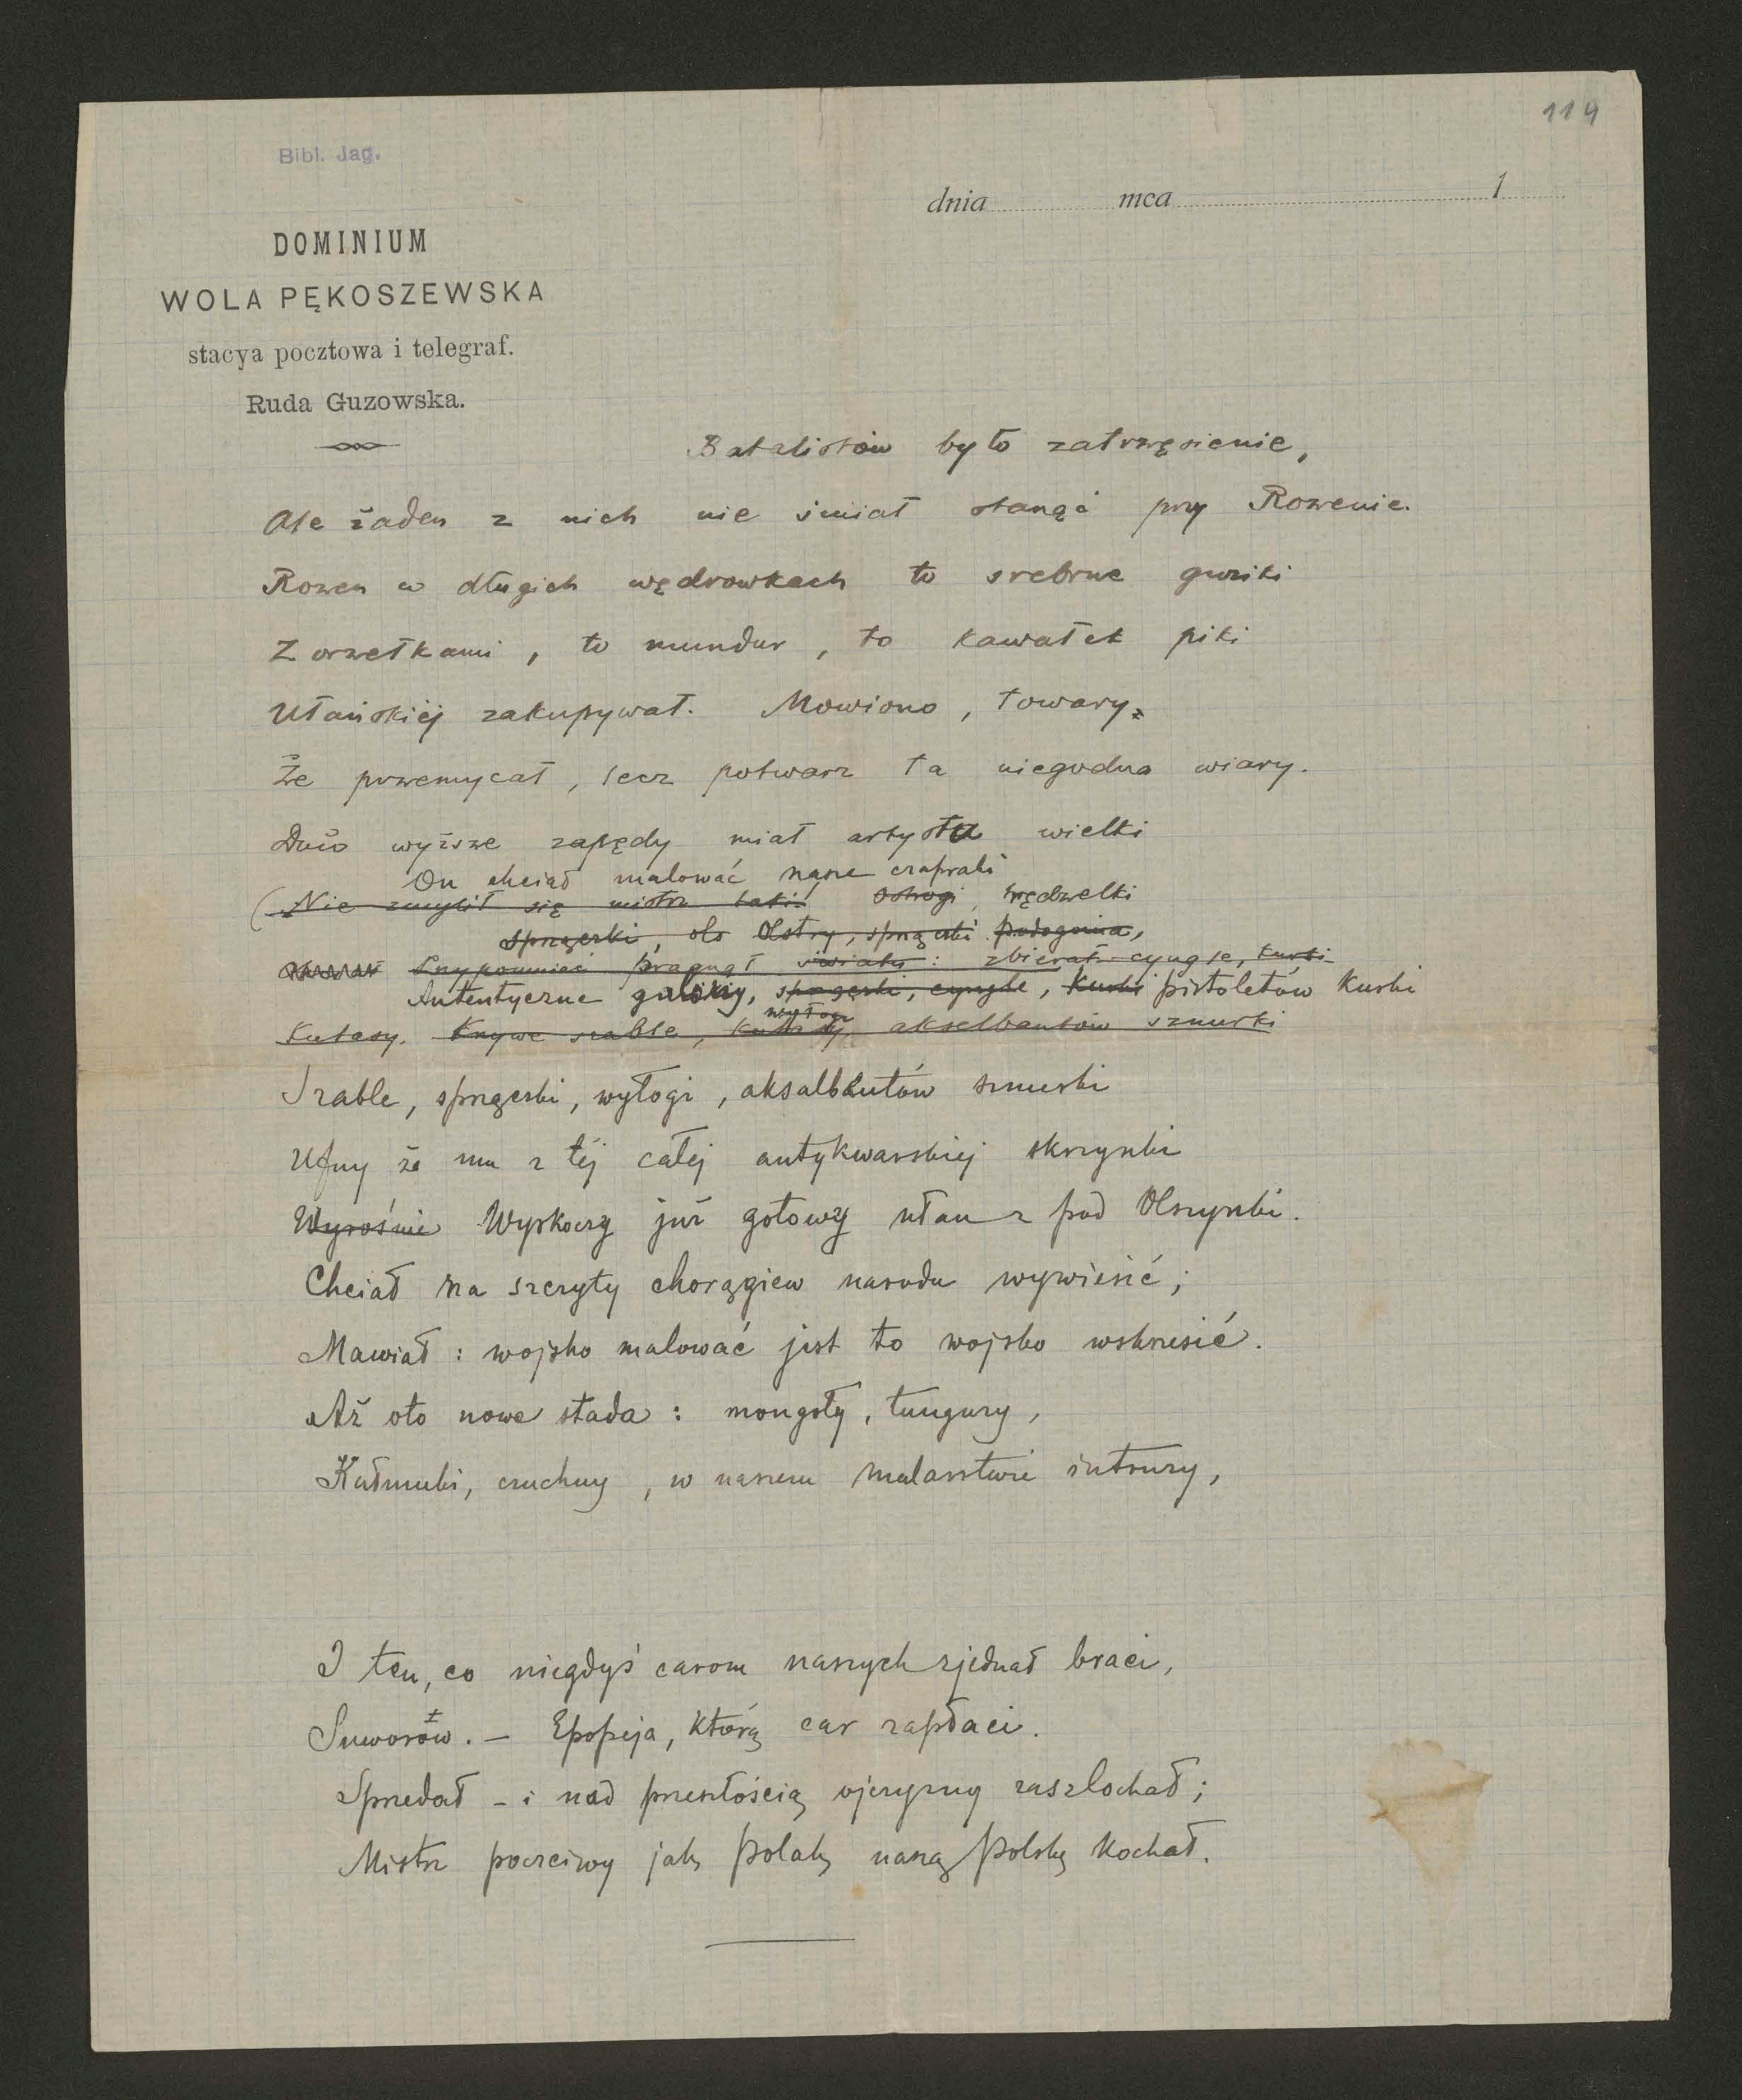 114
Bibl. Jag.
dnia mca 1
DOMINIUM
WOLA PĘKOSZEWSKA
stacya pocztowa i telegraf.
Ruda Guzowska.
Batalistów było zatrzęsienie,
Ale żaden z nich nie śmiał stanąć przy Rozenie.
Rozen w długich wędrowkach to srebrne guziki
Z orzełkami, to mundur, to kawałek piki
Ułańskiéj zakupywał. Mowiono, towary,
Że przemycał, lecz potwarz ta niegodna wiary.
Dużo wyższe zapędy miał artysta wielki
On chciał malować nasze czapraki
(Nie zmylił się mistrz taki! Ostrogi, wędzelki
sprzączki, olstry, sprzączki podogonia,
Przypomnieć pragnął światu: zbierał cyngle, kurki
Autentyczne guziki, sprzączki, cyngle, kurki pistoletów kurki
wyłogi
Kutasy. Krzywe szable, kutasy, akselbantów sznurki
Szable, sprzączki, wyłogi, akselbantów sznurki
Ufny że mu z téj całej antykwarskiej skrzynki
Wyrośnie Wyskoczy już gotowy ułan z pod Olszynki.
Chciał na szczyty chorągiew narodu wywiesić;
Mawiał: wojsko malować jest to wojsko wskrzesić.
Aż oto nowe stada: mongoły, tunguzy,
Kałmuki, czuchny, w naszem malarstwie intruzy,
I ten, co niegdyś carom naszych zjednał braci,
Suworow. – Epopeja, którą car zapłaci.
Sprzedał – i nad przeszłością ojczyzny zaszlochał;
Mistrz poczciwy jak Polak, naszą Polskę kochał.